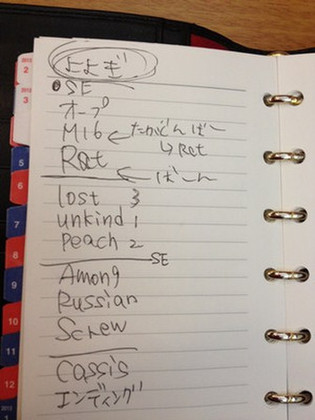 よよぎ
SE
オープ
M16 ← たがどんばー
↳ Rat
Rat
← ばーん
lost 3
unkind 1
Peach 2
SE
Among
Russian
Screw
Cassis
エンディング
2
3
5
6
7
8
9
10
11
12
1